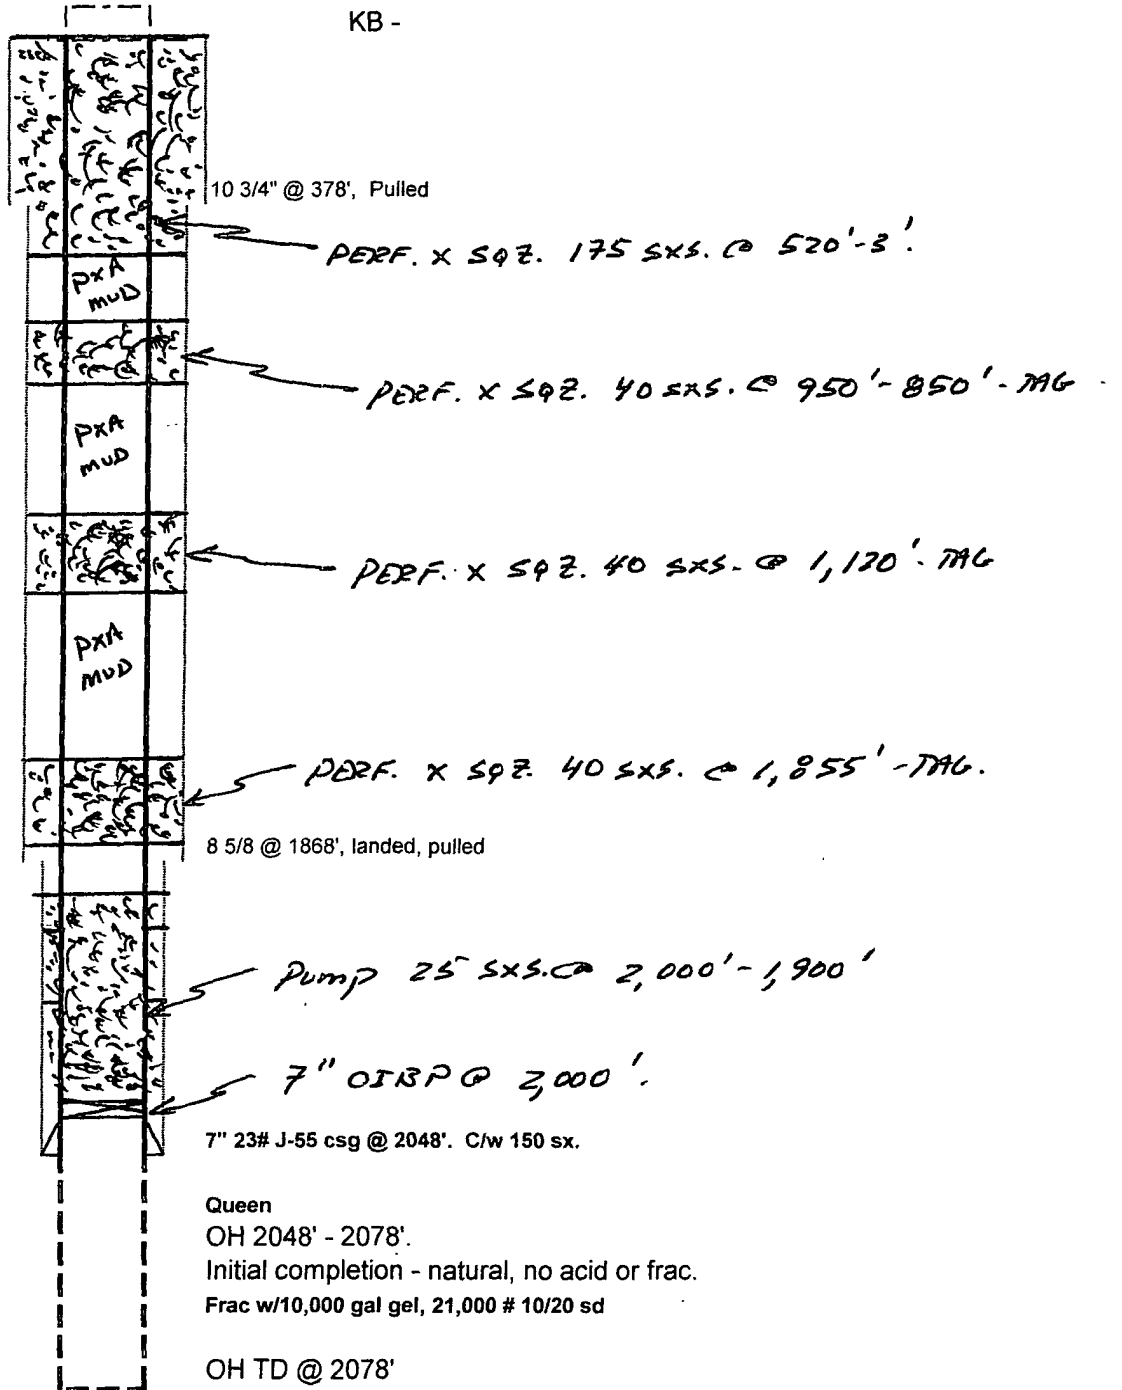 KB -
10 3/4" @ 378', Pulled
PERF. X SQZ. 175 SXS. @ 520'-3'.
PXA
MUD
PERF. X SQZ. 40 SXS. @ 950'-850'-TAG
PXA
MUD
PERF. X SQZ. 40 SXS. @ 1,120'-TAG
PXA
MUD
PERF. X SQZ. 40 SXS. @ 1,855'-TAG.
8 5/8 @ 1868', landed, pulled
Pump 25 SXS. @ 2,000'-1,900'
7" CIBP @ 2,000'.
7" 23# J-55 csg @ 2048'. C/w 150 sx.
Queen
OH 2048' - 2078'.
Initial completion - natural, no acid or frac.
Frac w/10,000 gal gel, 21,000 # 10/20 sd
OH TD @ 2078'